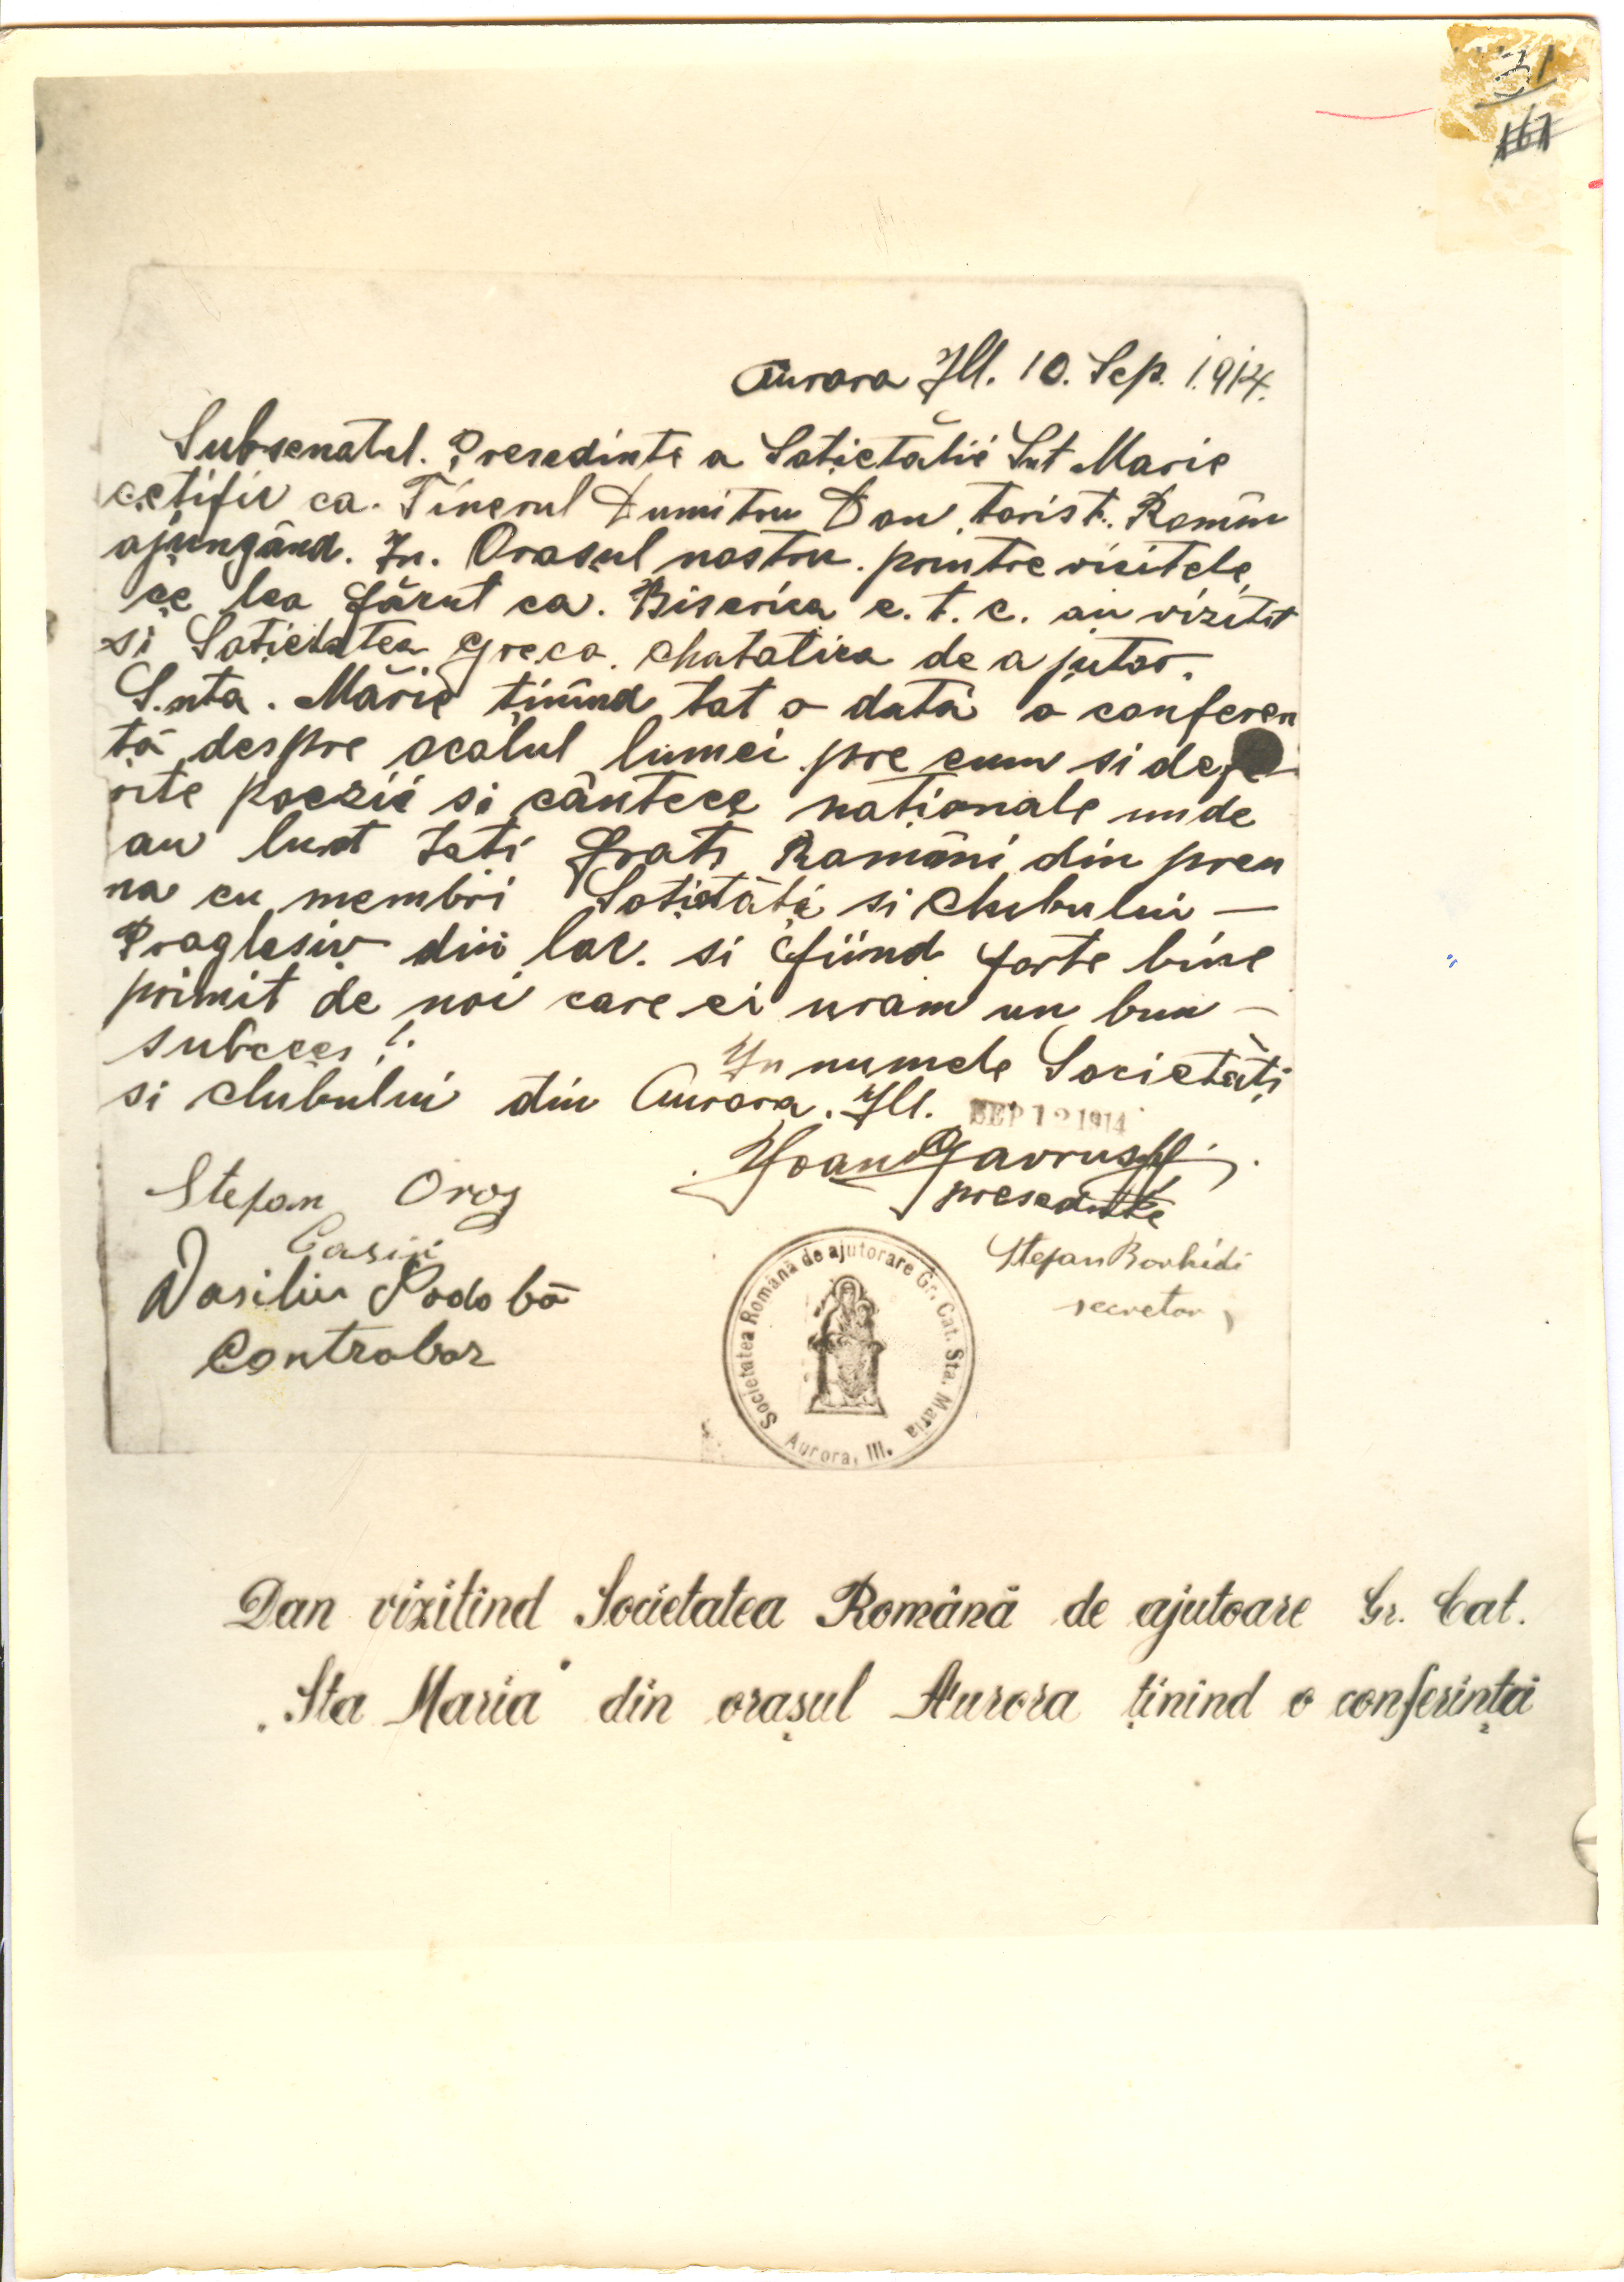 31
161
Aurora Ill. 10. Sep. 1914.
Subsenatul. Presedinte a Soțietătii Snt Marie
cetific ca. Tinerul Dumitru Dan torist. Român
ajungând. In. Orasul nostru. printre visitele
ce lea făcut ca. Biserica e. t. c. au vizitat
si Soțietatea Greco. Chatolica de ajutor.
S.nta. Mărie ținînd tot o dată o conferen
ță despre ocolul lumei pre cum si dife
rite poezii si cântece naționale unde
au luat toti frati Români din preu
na cu membri Soțietăți si Clubului —
Proglesiv din loc. si fiind forte bine
primit de noi care ei uram un bun —
subcees !.
In numele Societăți
si clubului din Aurora. Ill.
SEP 12 1914
Ioan Gavrus
presedinte
Stefan Oros
Casiir
Vasiliu Podobă
Controlor
Stefan Borhidi
secretar
Societatea Română de ajutorare Gr. Cat. Sta. Maria
Aurora, Ill.
Dan vizitînd Societatea Română de ajutoare Gr. Cat.
„Sta Maria" din orașul Aurora ținînd o conferință